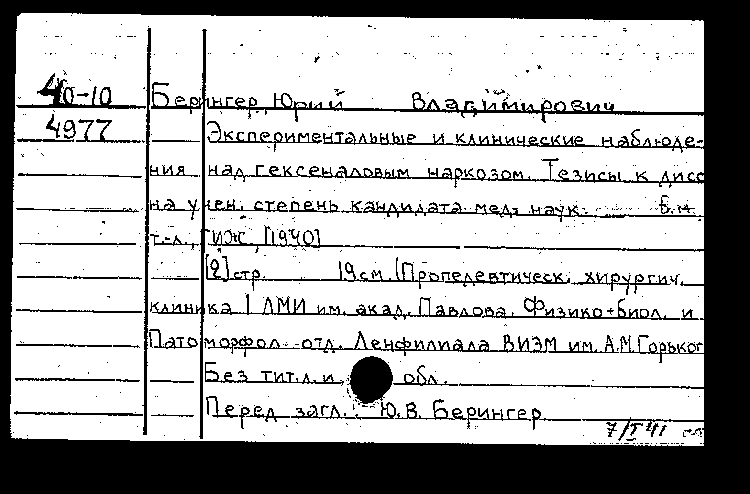 40-10 Берингер, Юрий Владимирович
4977 Экспериментальные и клинические наблюде-
ния над гексеналовым наркозом. Тезисы к дисс
на учен. степень кандидата мед. наук. Б.м.
т.-л., ГИЖ, [1940]
[2] стр. 19 см. (Пропедевтическ. хирургич.
клиника I ЛМИ им. акад. Павлова. Физико-биол. и
Патоморфол. отд. Ленфилиала ВИЭМ им. А.М. Горьког
Без тит.л. и обл.
Перед загл.: Ю.В. Берингер
7/I 41